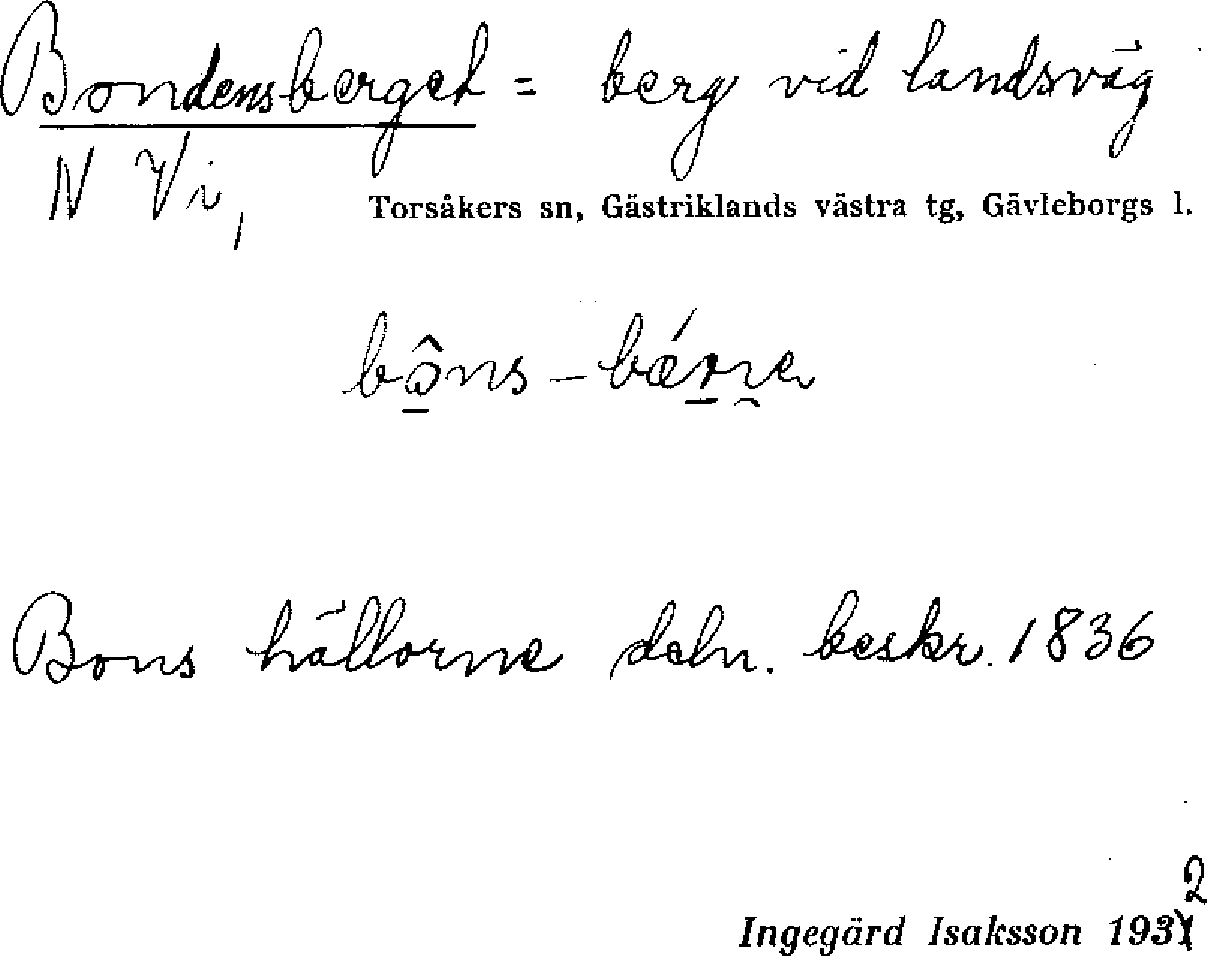 Bondensberget = berg vid landsväg
N Vi, Torsåkers sn, Gästriklands västra tg, Gävleborgs l.
Bons hällorne deln. beskr. 1836
2
Ingegärd Isaksson 193